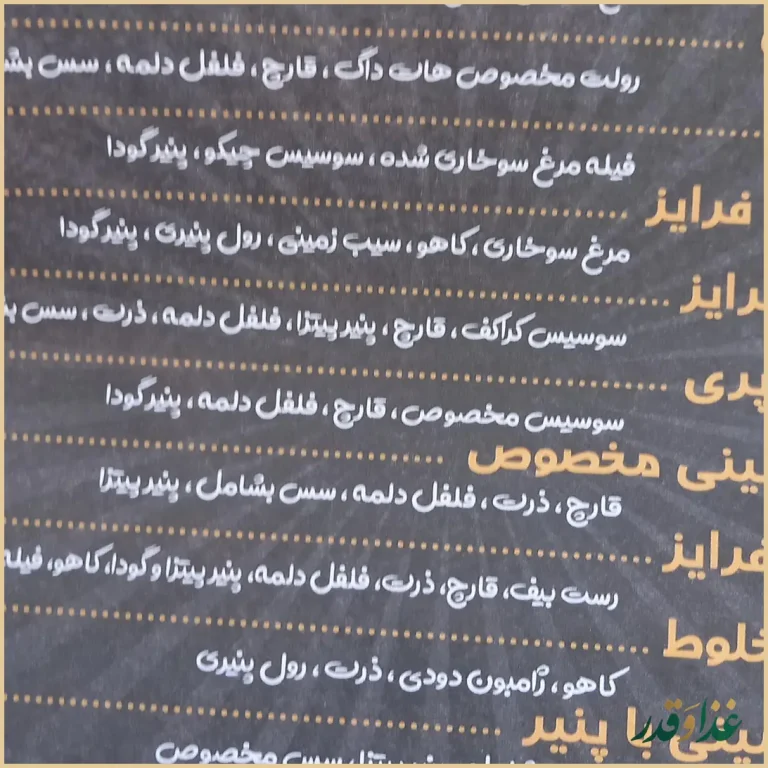 رولت مخصوص هات داگ ، قارچ ، فلفل دلمه ، سس
فیله مرغ سوخاری شده ، سوسیس چیکو ، پنیر گودا
فرایز
مرغ سوخاری ، کاهو ، سیب زمینی ، رول پنیری ، پنیر گودا
رایز
سوسیس کراکف ، قارچ ، پنیر پیتزا ، فلفل دلمه ، ذرت ، سس
پری
سوسیس مخصوص ، قارچ ، فلفل دلمه ، پنیر گودا
ینی مخصوص
قارچ ، ذرت ، فلفل دلمه ، سس بشامل ، پنیر پیتزا
فرایز
رست بیف، قارچ، ذرت، فلفل دلمه، پنیر پیتزا و گودا، کاهو، فیله
خلوط
کاهو ، ژامبون دودی ، ذرت ، رول پنیری
ینی با پنیر
سس مخصوص
غذا و قدر